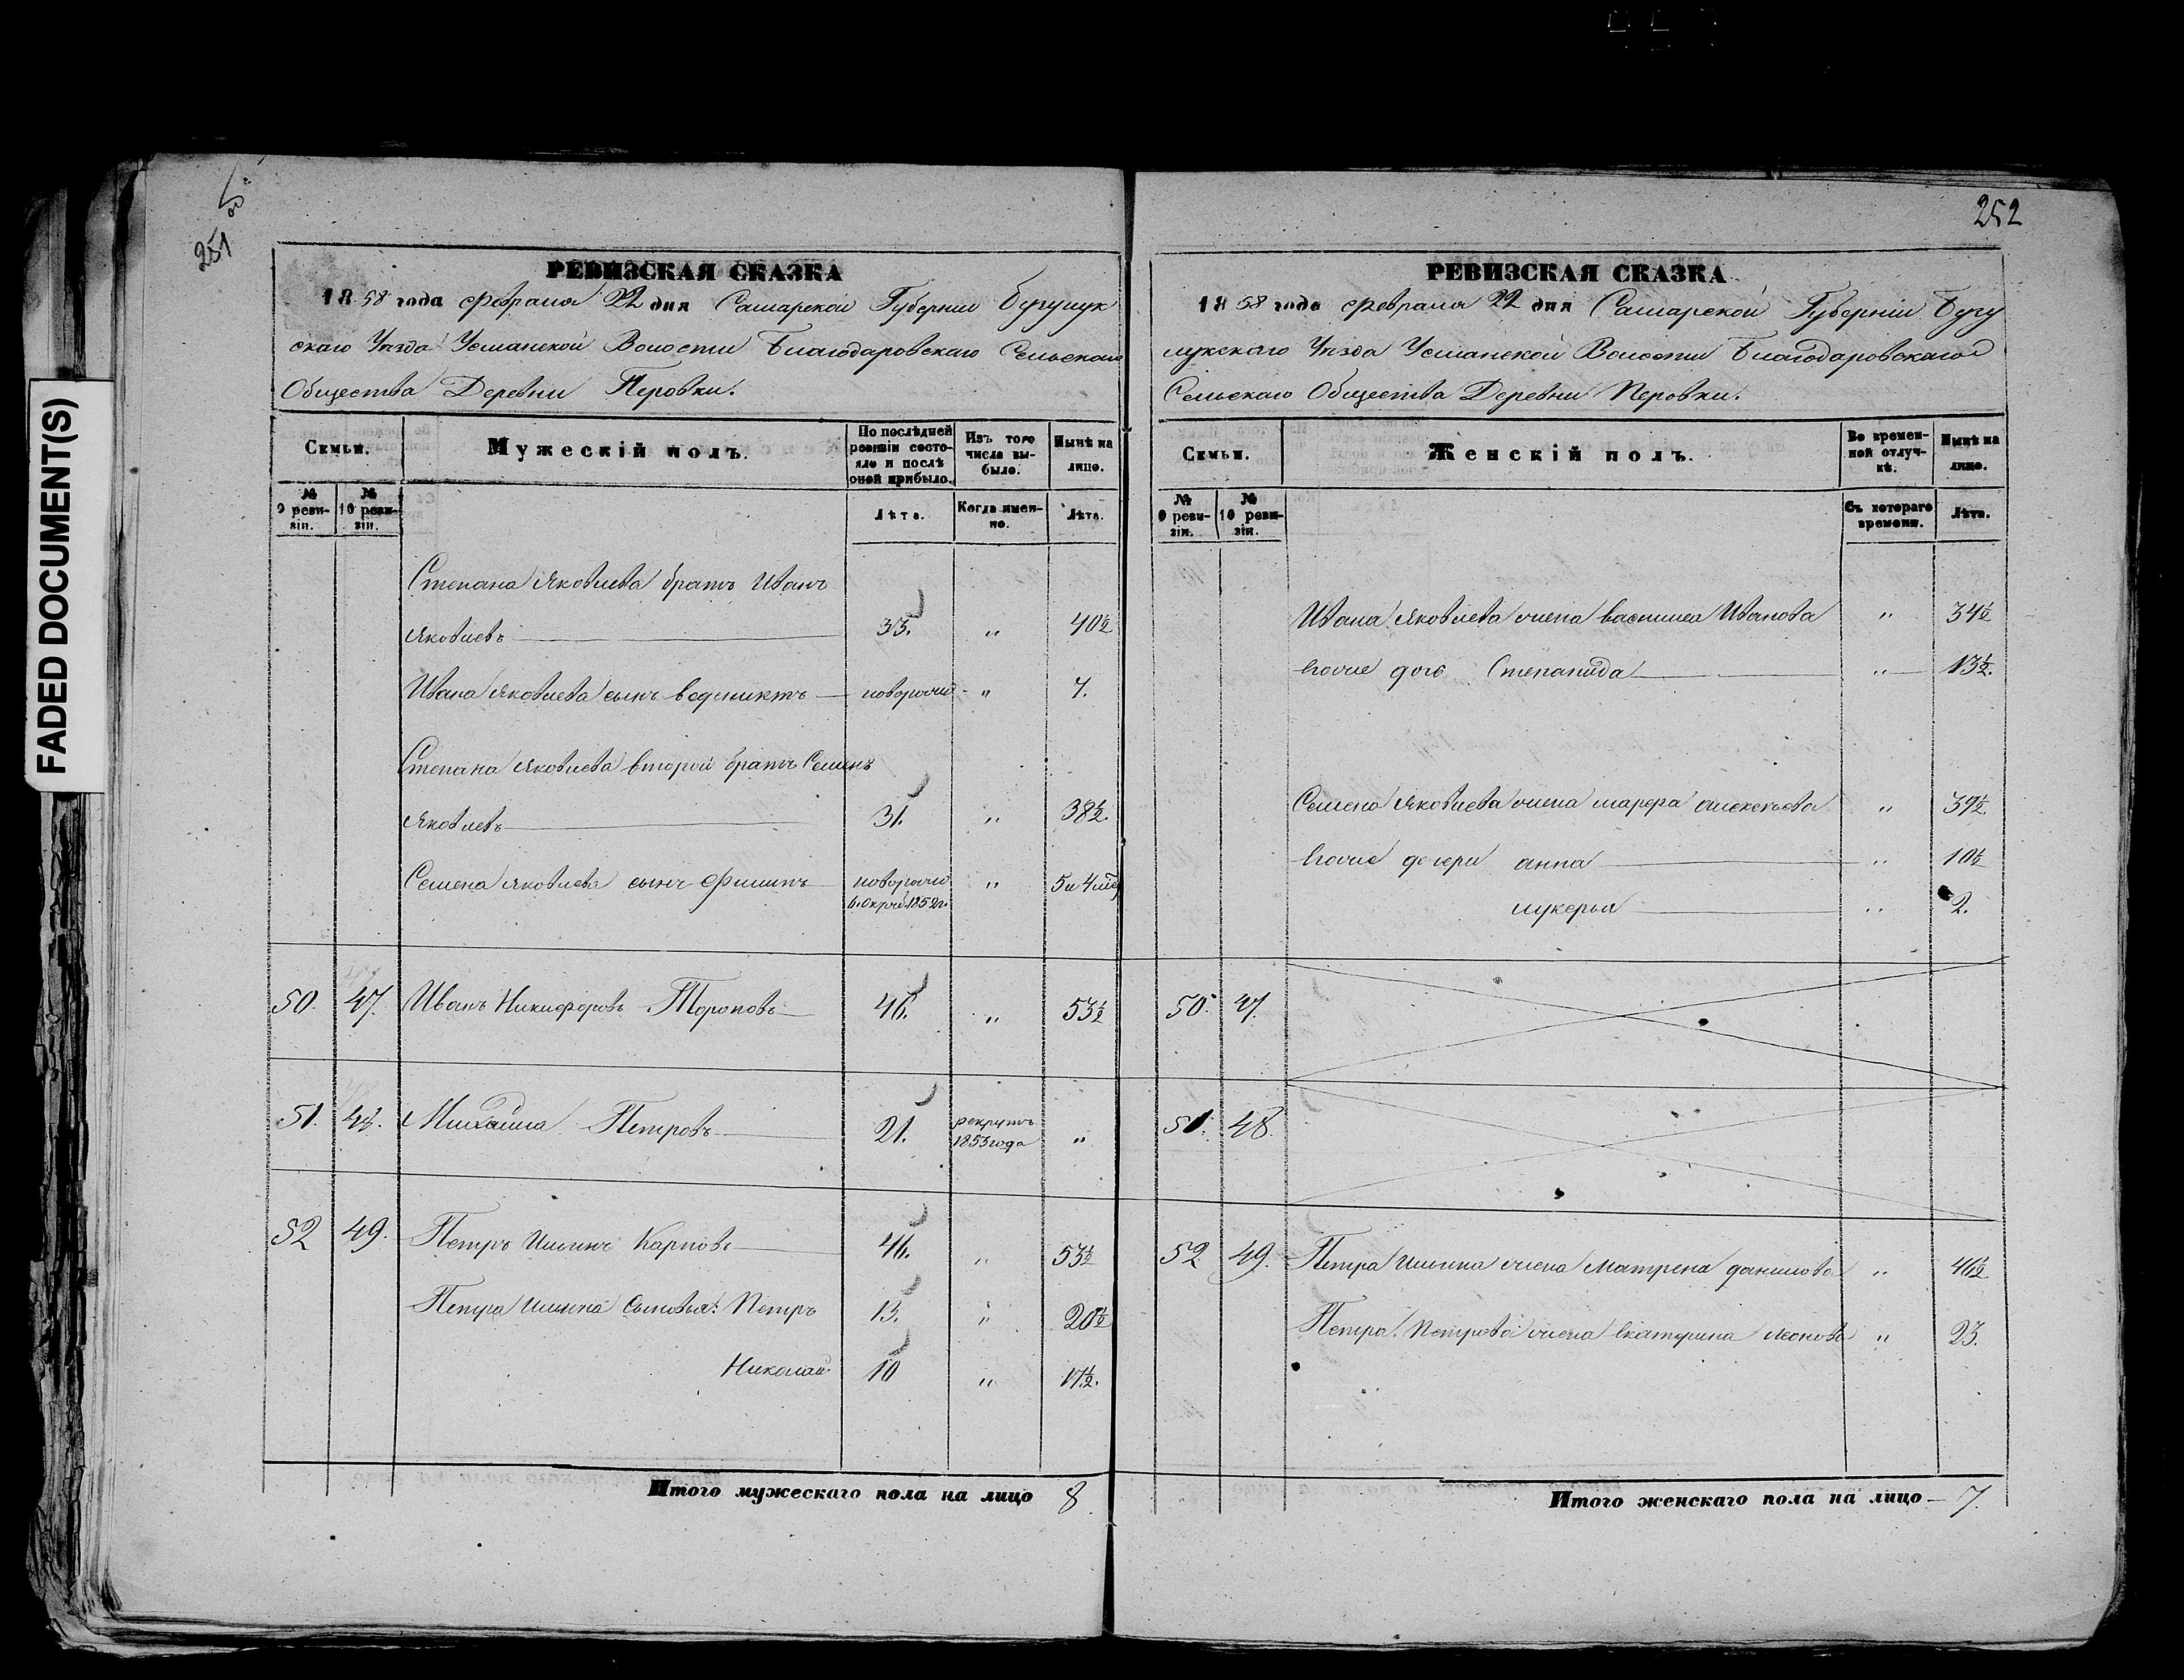 FADED DOCUMENT(S)
251
252
РЕВИЗСКАЯ СКАЗКА
1858 года Февраля 22 дня Самарской Губернии Бугурук
скаго Уѣзда Усманской Волости Благодаровскаго Сельскаго
Общества Деревни Перовки.
Семьи.
Мужескій полъ.
По послѣдней ревизіи состояло и послѣ оной прибыло.
Изъ того числа выбыло.
Нынѣ на лицо.
№ 9 ревизіи.
№ 10 ревизіи.
Лѣта.
Когда именно.
Лѣта.
Степана Яковлева братъ Иванъ
Яковлевъ 33. " 40½
Ивана Яковлева сынъ Ведениктъ " 7.
Степана Яковлева второй братъ Семенъ
Яковлевъ 31. " 38½.
Семена Яковлева сынъ Филипъ " 5 и 4
1852г.
50. 47. Иванъ Никифоровъ Тороповъ 46. " 53½
51. 48. Михайла Петровъ 21. рекрутъ "
1853 года
52 49. Петръ Ильинъ Карповъ 46. " 53½
Петра Ильина Сыновья: Петръ 13. " 20½
Николай 10 " 17½.
Итого мужескаго пола на лицо 8
РЕВИЗСКАЯ СКАЗКА
1858 года Февраля 22 дня Самарской Губерніи Бугу
Уѣзда Усманской Волости Благодаровскаго
Сельскаго Общества Деревни Перовки.
Семьи.
Женскій полъ.
Во временной отлучкѣ.
Нынѣ на лицо.
№ 9 ревизіи.
№ 10 ревизіи.
Съ котораго времени.
Лѣта.
Ивана Яковлева жена Василиса Иванова " 34½
Ево дочь Степанида " 13½.
Семена Яковлева жена Марфа Алексеева " 39½.
дочери Анна " 10½
Лукерья " 2.
50. 47.
51. 48.
52. 49. Петра Ильина жена Матрена Данилова " 46½
Петра Петрова жена Екатерина Леонова " 23.
Итого женскаго пола на лицо 7.